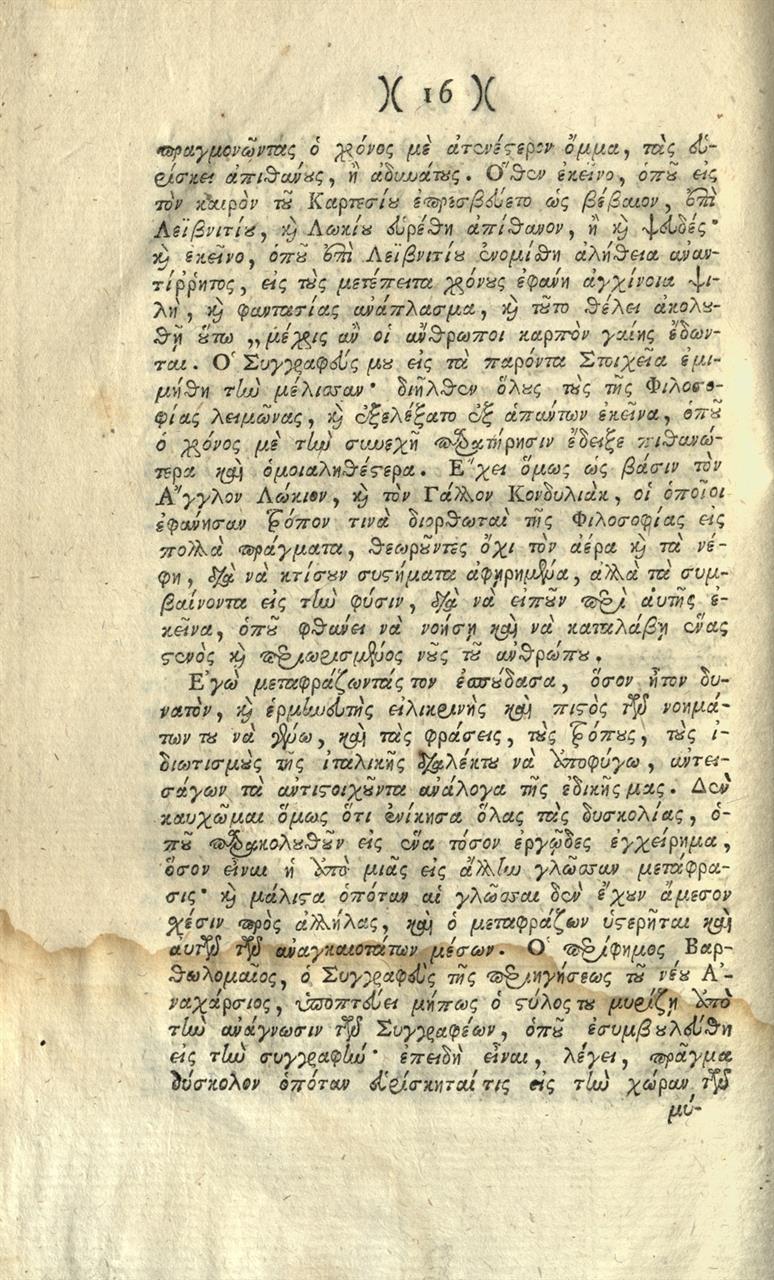 )( 16 )(
πραγμονῶντας ὁ χρόνος μὲ ἀτενέςερον ὄμμα, τὰς εὑ-
ρίσκει ἀπιθάνους, ἢ ἀδυνάτους. Ὅθεν ἐκεῖνο, ὁποῦ εἰς
τὸν καιρὸν τοῦ Καρτεσίου ἐπρεσβεύετο ὡς βέβαιον, ἐπὶ
Λεϊβνιτίου, καὶ Λωκίου εὑρέθη ἀπίθανον, ἢ καὶ ψευδές·
καὶ ἐκεῖνο, ὁποῦ ἐπὶ Λεϊβνιτίου ἐνομίθη ἀλήθεια ἀναν-
τίῤῥητος, εἰς τοὺς μετέπειτα χρόνους ἐφανη ἀγχίνοια ψι-
λὴ, καὶ φαντασίας ἀνάπλασμα, καὶ τοῦτο θέλει ἀκολου-
θῆ οὕτω „μέχρις ἂν οἱ ἄνθρωποι καρπὸν γαίης ἔδων-
ται. Ὁ Συγγραφεύς μου εἰς τὰ παρόντα Στοιχεῖα ἐμι-
μήθη τὴν μέλισσαν· διῆλθεν ὅλους τοὺς τῆς Φιλοσο-
φίας λειμῶνας, καὶ ἐξελέξατο ἐξ ἁπάντων ἐκεῖνα, ὁποῦ
ὁ χρόνος μὲ τὴν συνεχῆ παρατήρησιν ἔδειξε πιθανώ-
τερα καὶ ὁμοιαληθέςερα. Ἔχει ὅμως ὡς βάσιν τὸν
Ἄγγλον Λώκιον, καὶ τὸν Γάλλον Κονδυλιὰκ, οἱ ὁποῖοι
ἐφάνησαν τρόπον τινὰ διορθωταὶ τῆς Φιλοσοφίας εἰς
πολλὰ πράγματα, θεωροῦντες ὄχι τὸν ἀέρα καὶ τὰ νέ-
φη, διὰ νὰ κτίσουν συςήματα ἀφῃρημένα, ἀλλὰ τὰ συμ-
βαίνοντα εἰς τὴν φύσιν, διὰ νὰ εἰποῦν περὶ αὐτῆς ἐ-
κεῖνα, ὁποῦ φθάνει νὰ νοήσῃ καὶ νὰ καταλάβῃ ἕνας
ςενὸς καὶ περιωρισμένος νοῦς τοῦ ἀνθρώπου.
Ἐγὼ μεταφράζωντάς τον ἐσπούδασα, ὅσον ἦτον δυ-
νατὸν, καὶ ἑρμηνευτὴς εἰλικρινὴς καὶ πιςὸς τῶν νοημά-
των του νὰ γένω, καὶ τὰς φράσεις, τοὺς τρόπους, τοὺς ἰ-
διωτισμοὺς τῆς ἰταλικῆς διαλέκτου νὰ ὑποφύγω, ἀντει-
σάγων τὰ ἀντιςοιχοῦντα ἀνάλογα τῆς ἐδικῆς μας. Δὲν
καυχῶμαι ὅμως ὅτι ἐνίκησα ὅλας τὰς δυσκολίας, ὁ-
ποῦ παρακολουθοῦν εἰς ἕνα τόσον ἐργῶδες ἐγχείρημα,
ὅσον εἶναι ἡ ἀπὸ μιᾶς εἰς ἄλλην γλῶσσαν μετάφρα-
σις· καὶ μάλιςα ὁπόταν αἱ γλῶσσαι δὲν ἔχουν ἄμεσον
σχέσιν πρὸς ἀλλήλας, καὶ ὁ μεταφράζων ὑςερῆται καὶ
αὐτῶν τῶν ἀναγκαιοτάτων μέσων. Ὁ περίφημος Βαρ-
θωλομαῖος, ὁ Συγγραφεὺς τῆς περιηγήσεως τοῦ νέου Ἀ-
ναχάρσιος, ὑποπτεύει μήπως ὁ ςύλος του μυρίζῃ ἀπὸ
τὴν ἀνάγνωσιν τῶν Συγγραφέων, ὁποῦ ἐσυμβουλεύθη
εἰς τὴν συγγραφήν· ἐπειδὴ εἶναι, λέγει, πρᾶγμα
δύσκολον ὁπόταν εὑρίσκηταί τις εἰς τὴν χώραν τῶν
μύ-